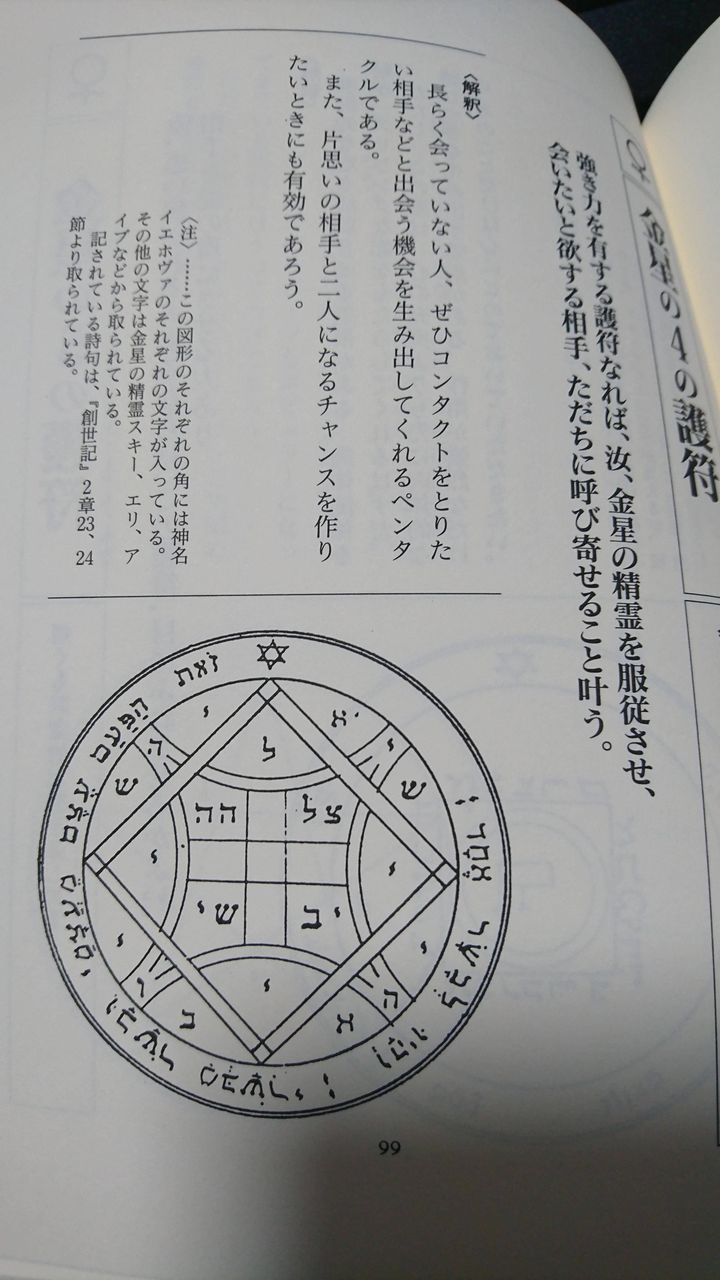 ♀
金星の4の護符
強き力を有する護符なれば、汝、金星の精霊を服従させ、
会いたいと欲する相手、ただちに呼び寄せること叶う。
〈解釈〉
長らく会っていない人、ぜひコンタクトをとりた
い相手などと出会う機会を生み出してくれるペンタ
クルである。
また、片思いの相手と二人になるチャンスを作り
たいときにも有効であろう。
〈注〉……この図形のそれぞれの角には神名
イエホヴァのそれぞれの文字が入っている。
その他の文字は金星の精霊スキー、エリ、ア
イブなどから取られている。
記されている詩句は、『創世記』2章23、24
節より取られている。
זאת
הפעם
ל
הה
צל
שי
יב
99